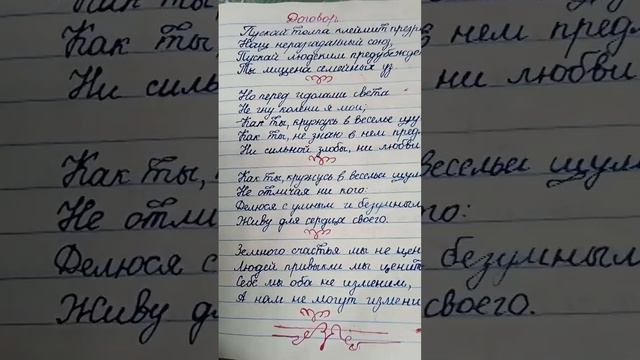 Договор.
Пускай толпа клеймит презре
Наш неразгаданный союз,
Пускай людским предубежде
Ты лишена семейных уз.
Но перед идолами света
Не гну колени я мои;
Как ты, кружусь в веселье шу
Как ты, не знаю в нем пред
Ни сильной злобы, ни любви
Как ты, кружусь в весельи шум
Не отличая ни кого:
Делюся с умным и безумным
Живу для сердца своего.
Земного счастья мы не цен
Людей привыкли мы ценит
Себе мы оба не изменим,
А нам не могут измени